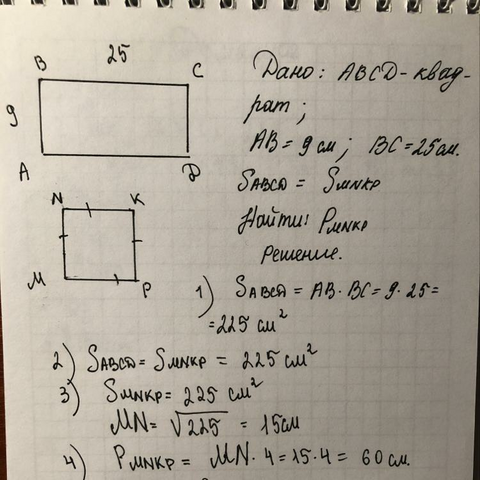 25
B
C
9
A
D
N
K
M
P
Дано: ABCD - квад-
рат;
AB = 9 см; BC = 25 см.
SABCD = SMNKP
Найти: PMNKP
Решение.
1) SABCD = AB · BC = 9 · 25 =
= 225 см²
2) SABCD = SMNKP = 225 см²
3) SMNKP = 225 см²
MN = √225 = 15 см
4) PMNKP = MN · 4 = 15 · 4 = 60 см.